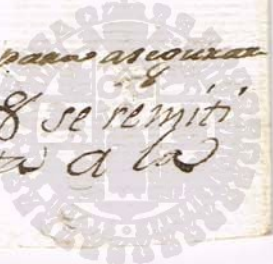 para asegurar
se remiti
a la